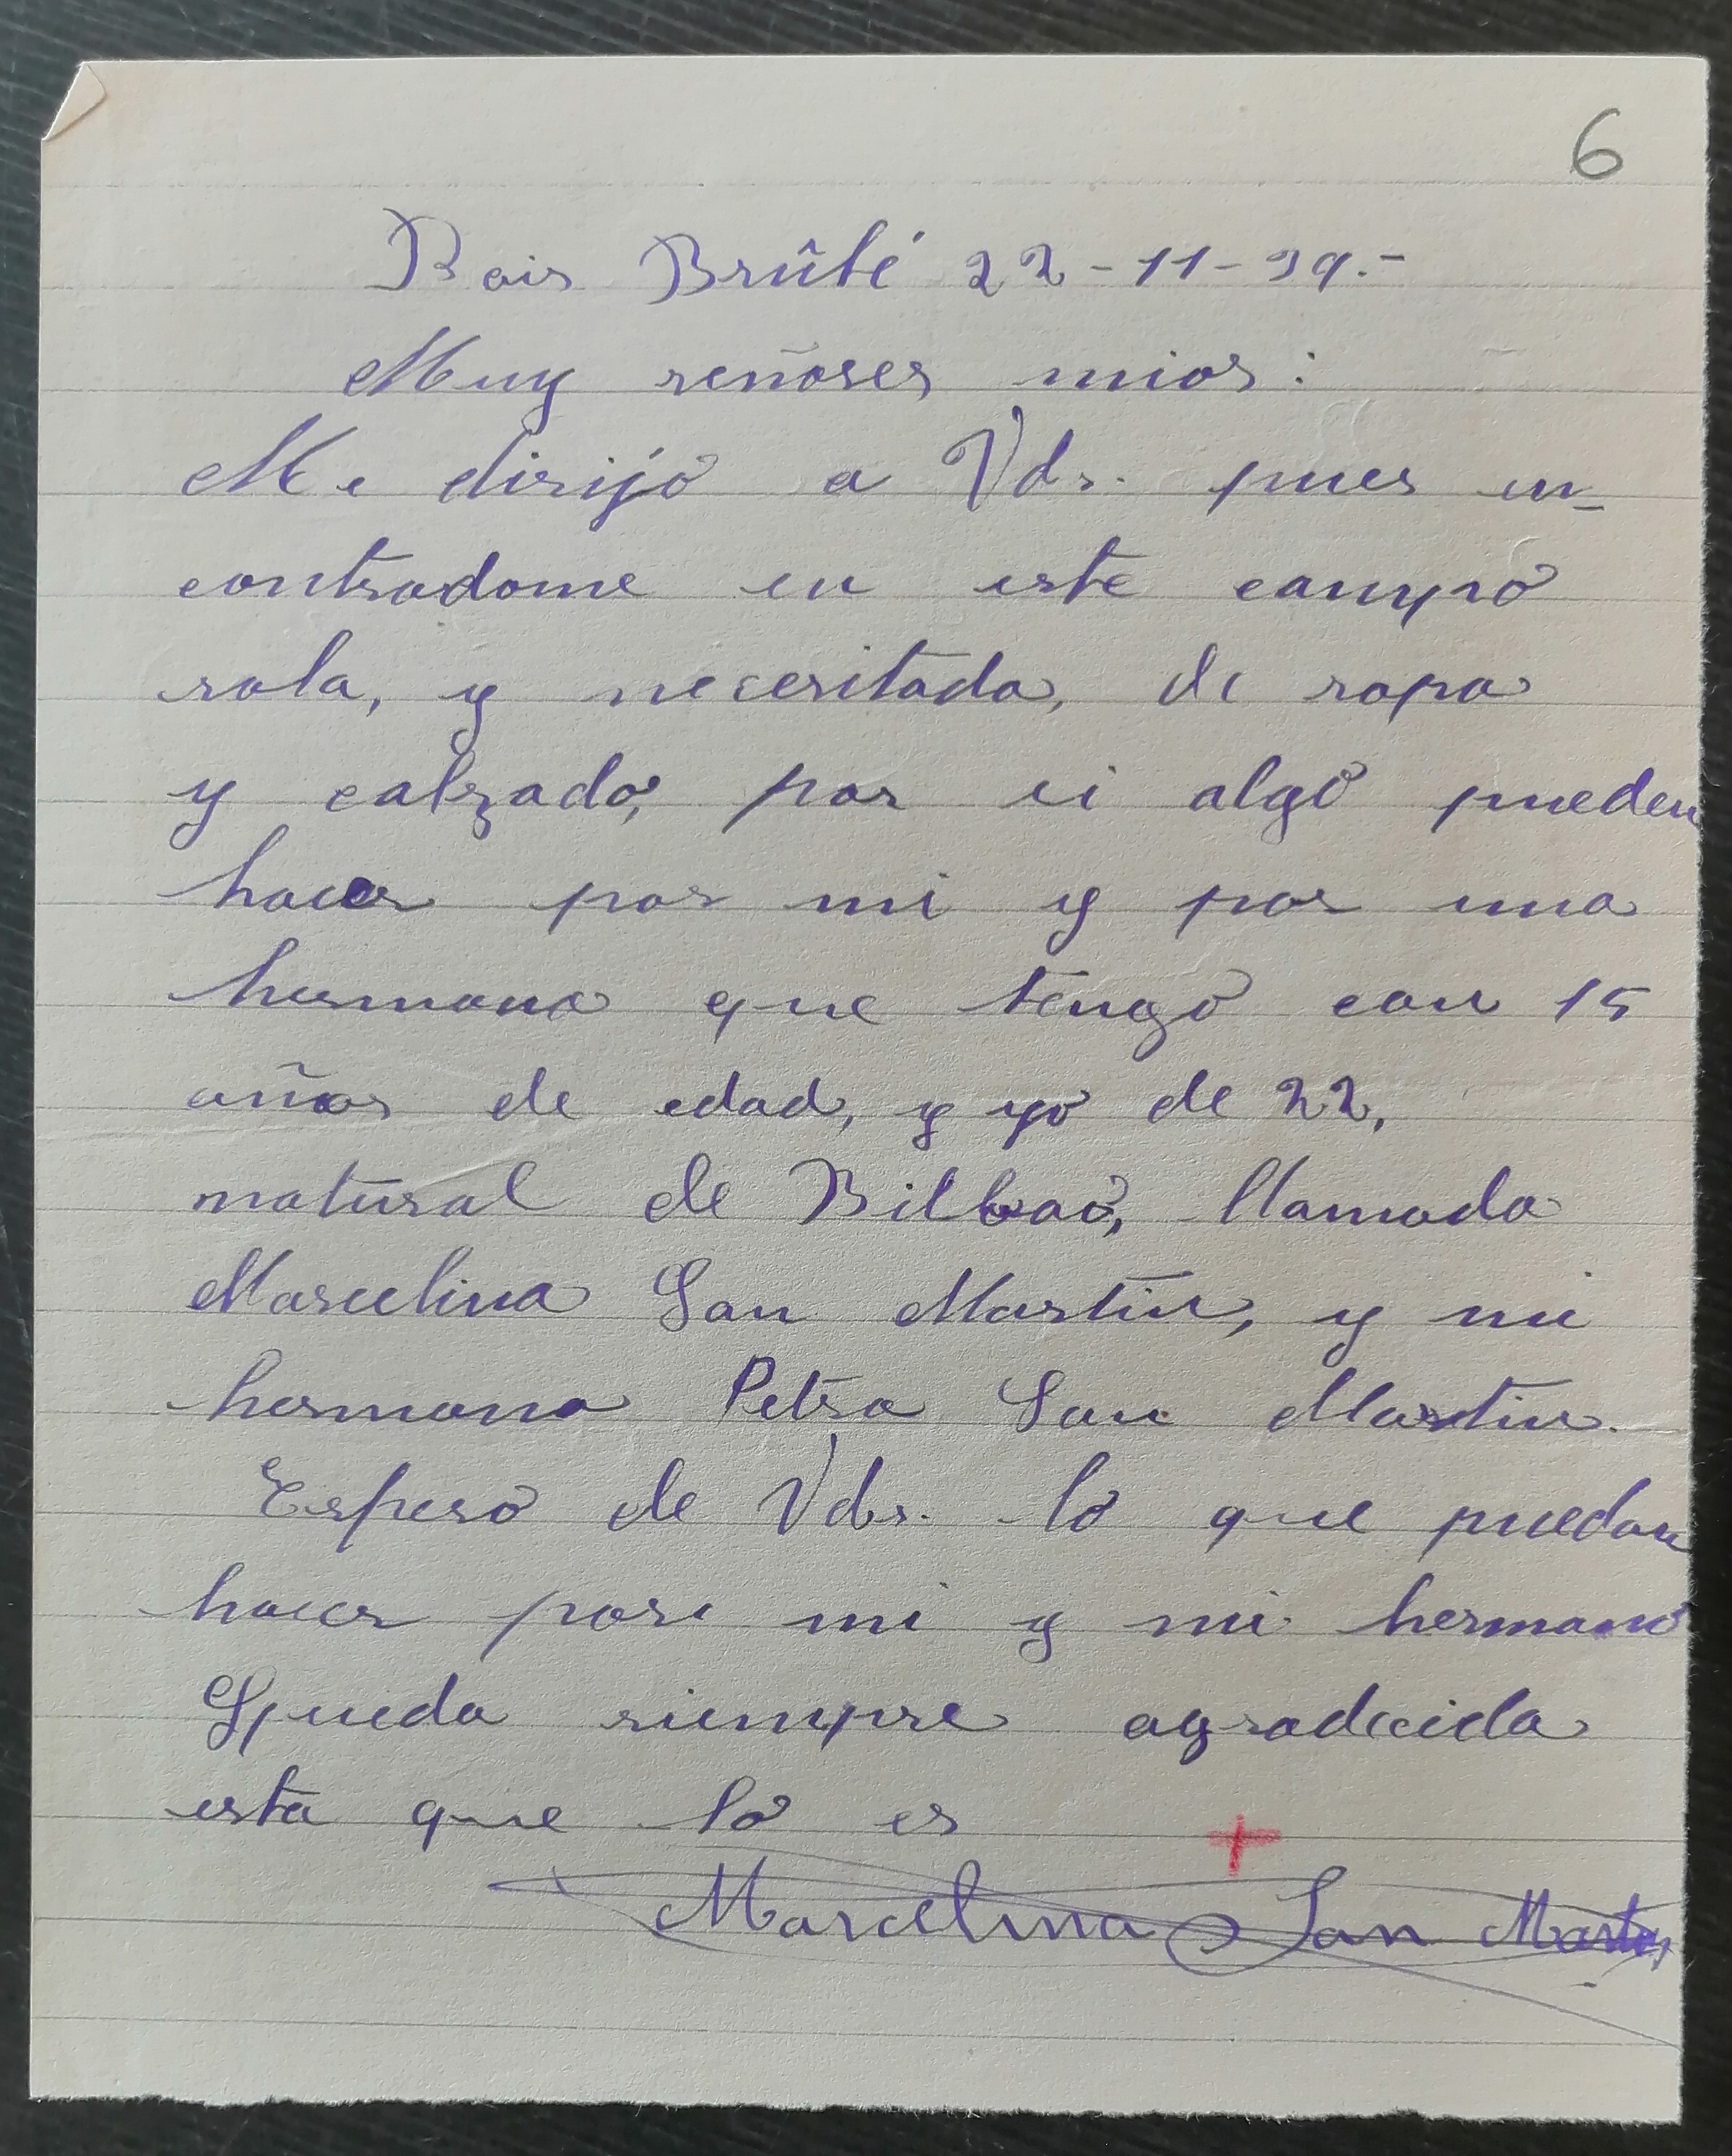 6
Bois Brûlé 22-11-39.-
Muy señores mios:
Me dirijo a Vds. pues en-
contradome en este campo
sola, y necesitada, de ropa
y calzado, por si algo pueden
hacer por mi y por una
hermana que tengo con 15
años de edad, y yo de 22,
natural de Bilbao, llamada
Marcelina San Martin, y mi
hermana Petra San Martin.
Espero de Vds. lo que puedan
hacer por mi y mi hermana
Queda siempre agradecida
esta que lo es
Marcelina San Martin